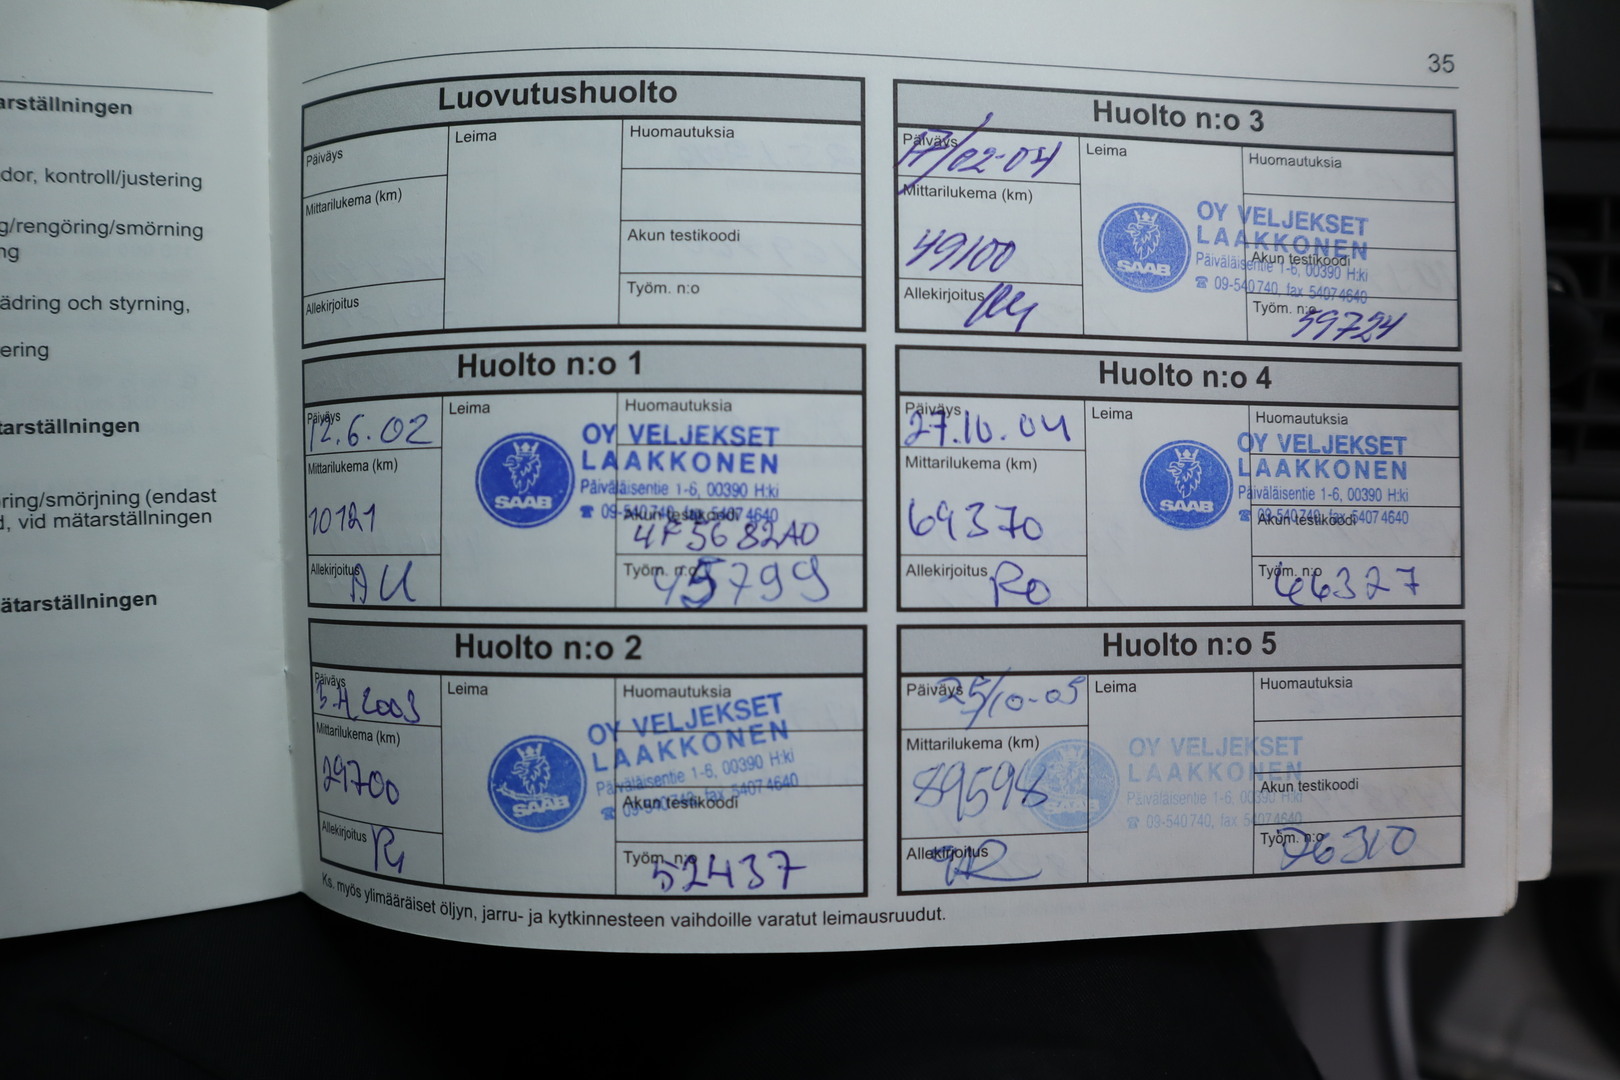 arställningen
dor, kontroll/justering
g/rengöring/smörning
ng
ädring och styrning,
ering
tarställningen
ring/smörjning (endast
d, vid mätarställningen
ätarställningen
35
Luovutushuolto
Päiväys
Leima
Huomautuksia
Mittarilukema (km)
Akun testikoodi
Allekirjoitus
Työm. n:o
Huolto n:o 1
Päiväys
12.6.02
Leima
Huomautuksia
Mittarilukema (km)
10121
SAAB
OY VELJEKSET
LAAKKONEN
Päiväläisentie 1-6, 00390 H:ki
☎ 09-540 740, fax 5407 4640
Akun testikoodi
4F5682A0
Allekirjoitus
AU
Työm. n:o
45799
Huolto n:o 2
Päiväys
2003
Leima
Huomautuksia
Mittarilukema (km)
29700
SAAB
OY VELJEKSET
LAAKKONEN
Päiväläisentie 1-6, 00390 H:ki
☎ 09-540 740, fax 5407 4640
Akun testikoodi
Allekirjoitus
Työm. n:o
52437
Ks. myös ylimääräiset öljyn, jarru- ja kytkinnesteen vaihdoille varatut leimausruudut.
Huolto n:o 3
Päiväys
17/02-04
Leima
Huomautuksia
Mittarilukema (km)
49100
SAAB
OY VELJEKSET
LAAKKONEN
Päiväläisentie 1-6, 00390 H:ki
☎ 09-540 740, fax 5407 4640
Akun testikoodi
Allekirjoitus
Työm. n:o
59724
Huolto n:o 4
Päiväys
27.10.04
Leima
Huomautuksia
Mittarilukema (km)
69370
SAAB
OY VELJEKSET
LAAKKONEN
Päiväläisentie 1-6, 00390 H:ki
☎ 09-540 740, fax 5407 4640
Akun testikoodi
Allekirjoitus
Ro
Työm. n:o
66327
Huolto n:o 5
Päiväys
25/10-05
Leima
Huomautuksia
Mittarilukema (km)
89598
SAAB
OY VELJEKSET
LAAKKONEN
Päiväläisentie 1-6, 00390 H:ki
☎ 09-540 740, fax 5407 4640
Akun testikoodi
Allekirjoitus
Työm. n:o
76310